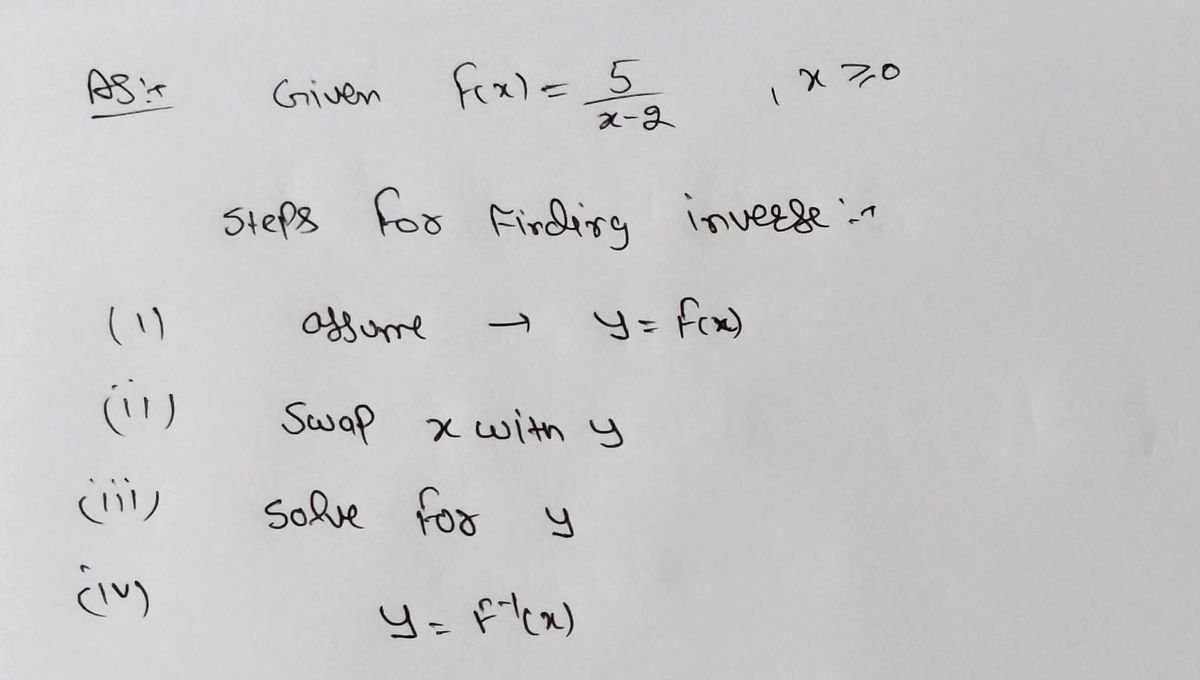 AS:- Given f(x) = 5/(x-2) , x ≥ 0
Steps for Finding inverse :-
(i) assume → y = f(x)
(ii) Swap x with y
(iii) Solve for y
(iv) y = f⁻¹(x)